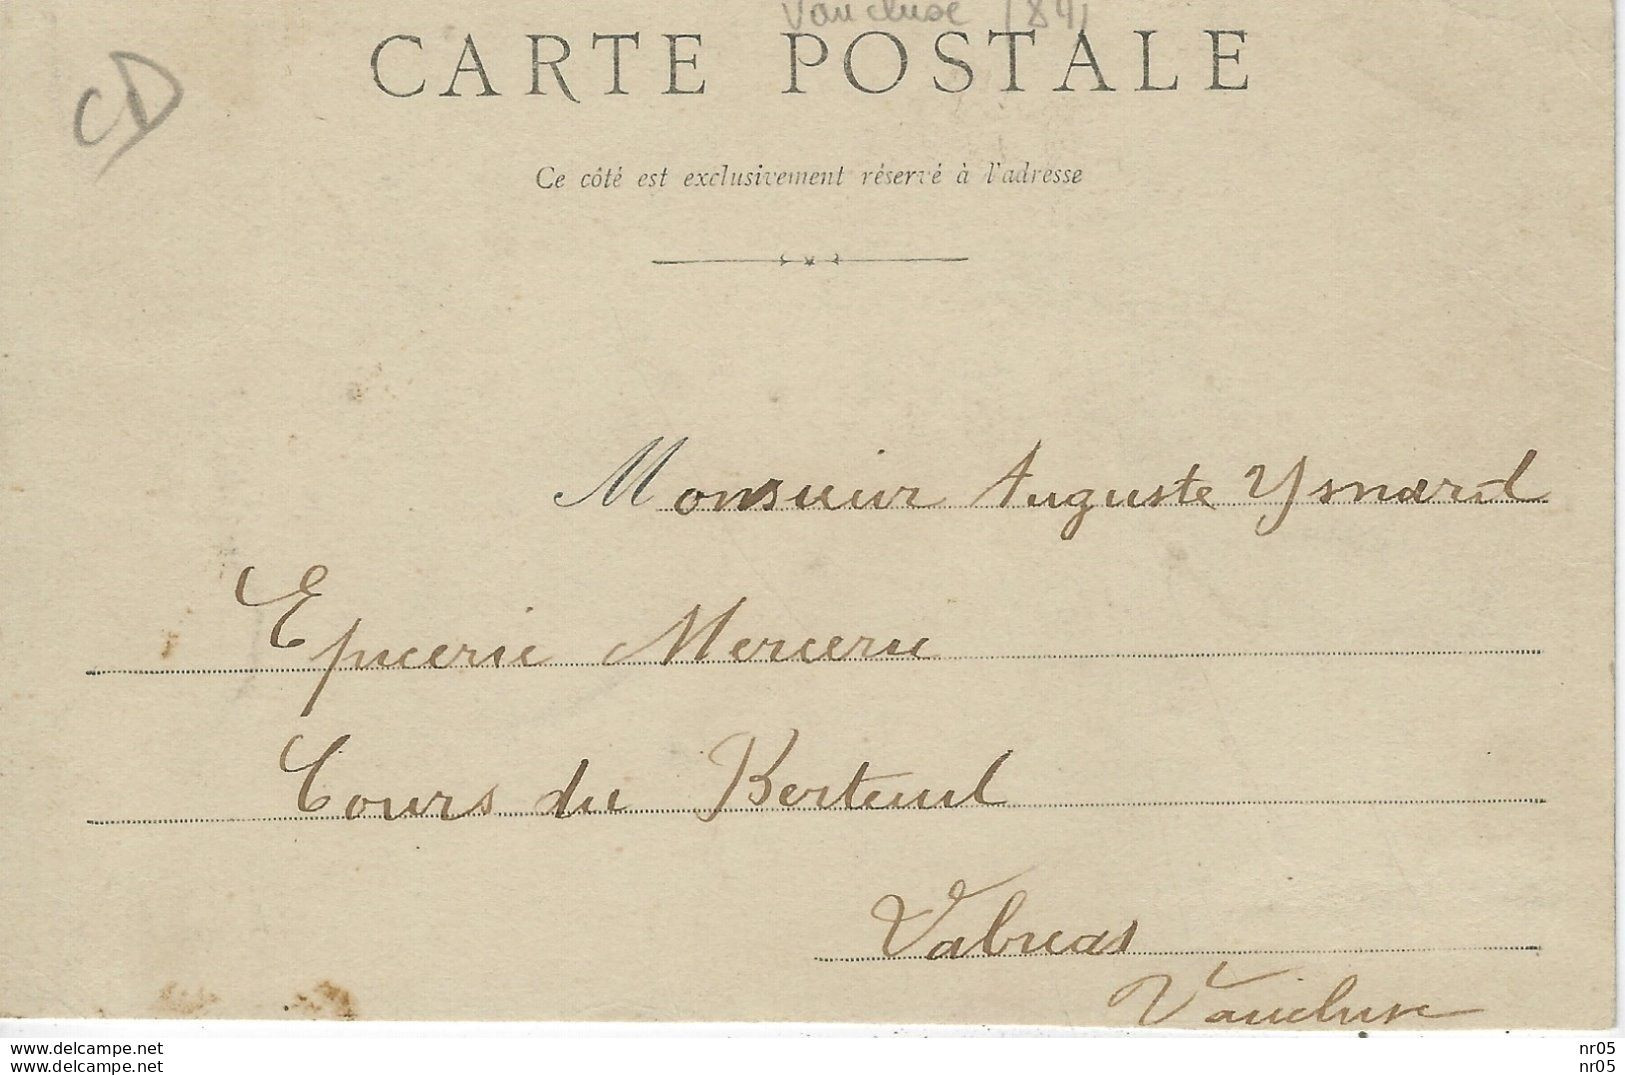 Vaucluse (84)
CARTE POSTALE
CD
Ce côté est exclusivement réservé à l'adresse
Monsieur Auguste Ysnard
Epicerie Mercerie
Cours du Berteuil
Valreas
Vaucluse
www.delcampe.net nr05
www.delcampe.net nr05